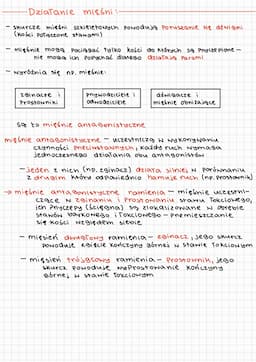 Działanie mięśni:
- skurcze mięśni szkieletowych powodują poruszanie się dźwigni
(kości połączone stawami)
- mięśnie mogą pociągać tylko kości do których są przyczepione -
nie mogą ich popychać dlatego działają parami
- wyróżnia się np. mięśnie:
zginacze i prostowniki
przywodziciele i odwodziciele
dźwigacze i mięśnie obniżające
są to mięśnie antagonistyczne
mięśnie antagonistyczne - uczestniczą w wykonywaniu
czynności przeciwstawnych, każdy ruch wymaga
jednoczesnego działania obu antagonistów
- jeden z nich (np. zginacz) działa silniej w porównaniu
z drugim, który odpowiednio hamuje ruch (np. prostownik)
→ mięśnie antagonistyczne ramienia - mięśnie uczestni-
czące w zginaniu i prostowaniu stawu łokciowego,
ich przyczepy (ścięgna) są zlokalizowane w obrębie
stawów barkowego i łokciowego - przemieszczanie
się kości względem siebie
- mięsień dwugłowy ramienia - zginacz, jego skurcz
powoduje zgięcie kończyny górnej w stawie łokciowym
- mięsień trójgłowy ramienia - prostownik, jego
skurcz powoduje wyprostowanie kończyny
górnej w stawie łokciowym